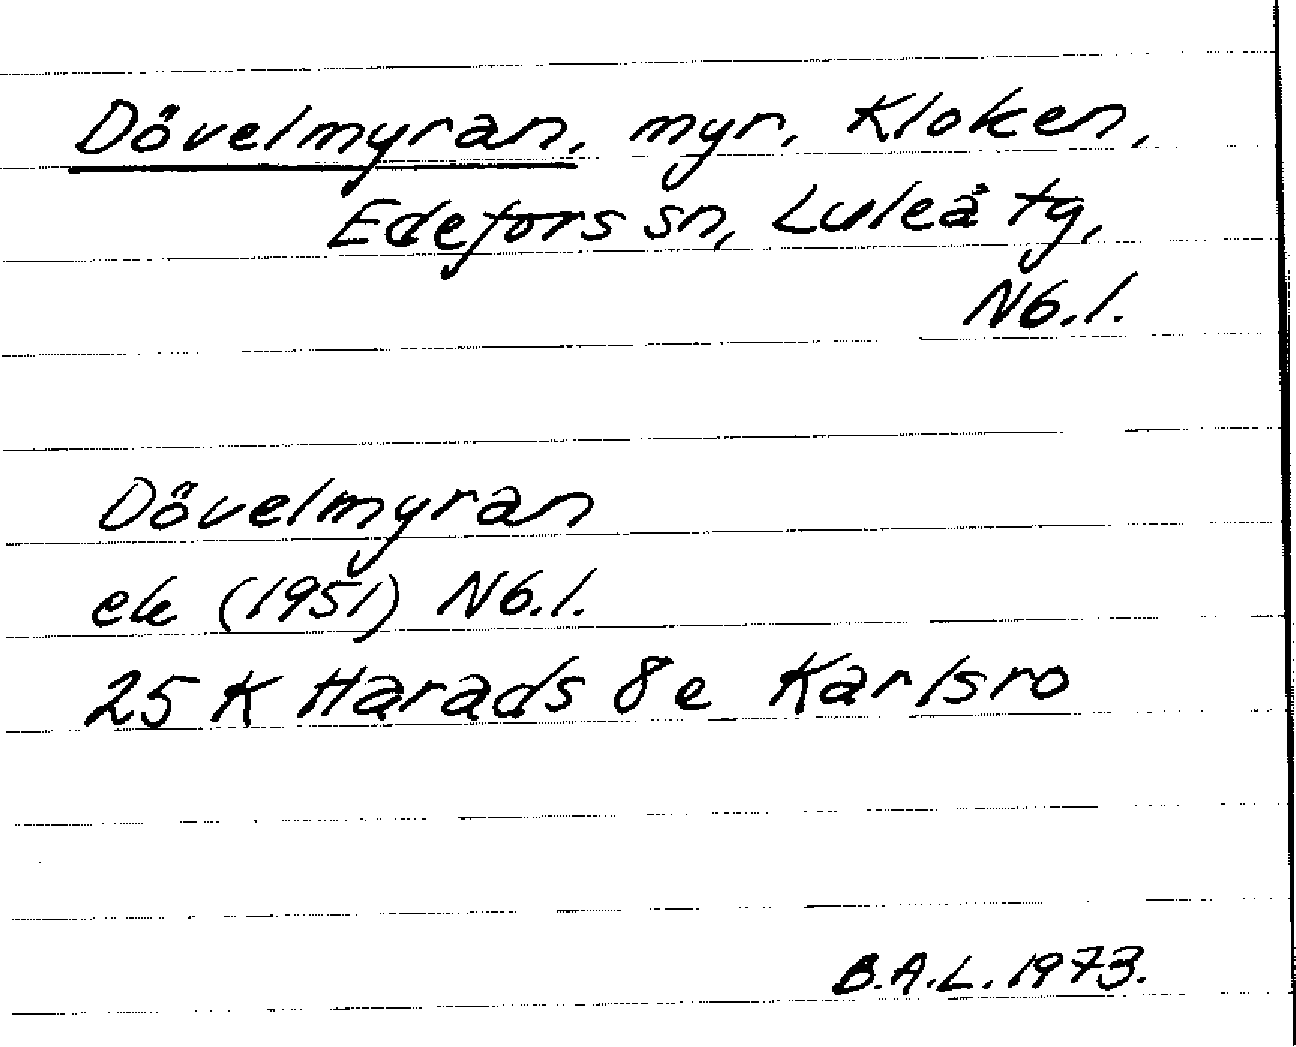 Dövelmyran, myr, Kloken,
Edefors sn, Luleå tg,
Nb.l.
Dövelmyran
ek (1951) Nb.l.
25 K Harads 8e Karlsro
B.A.L. 1973.